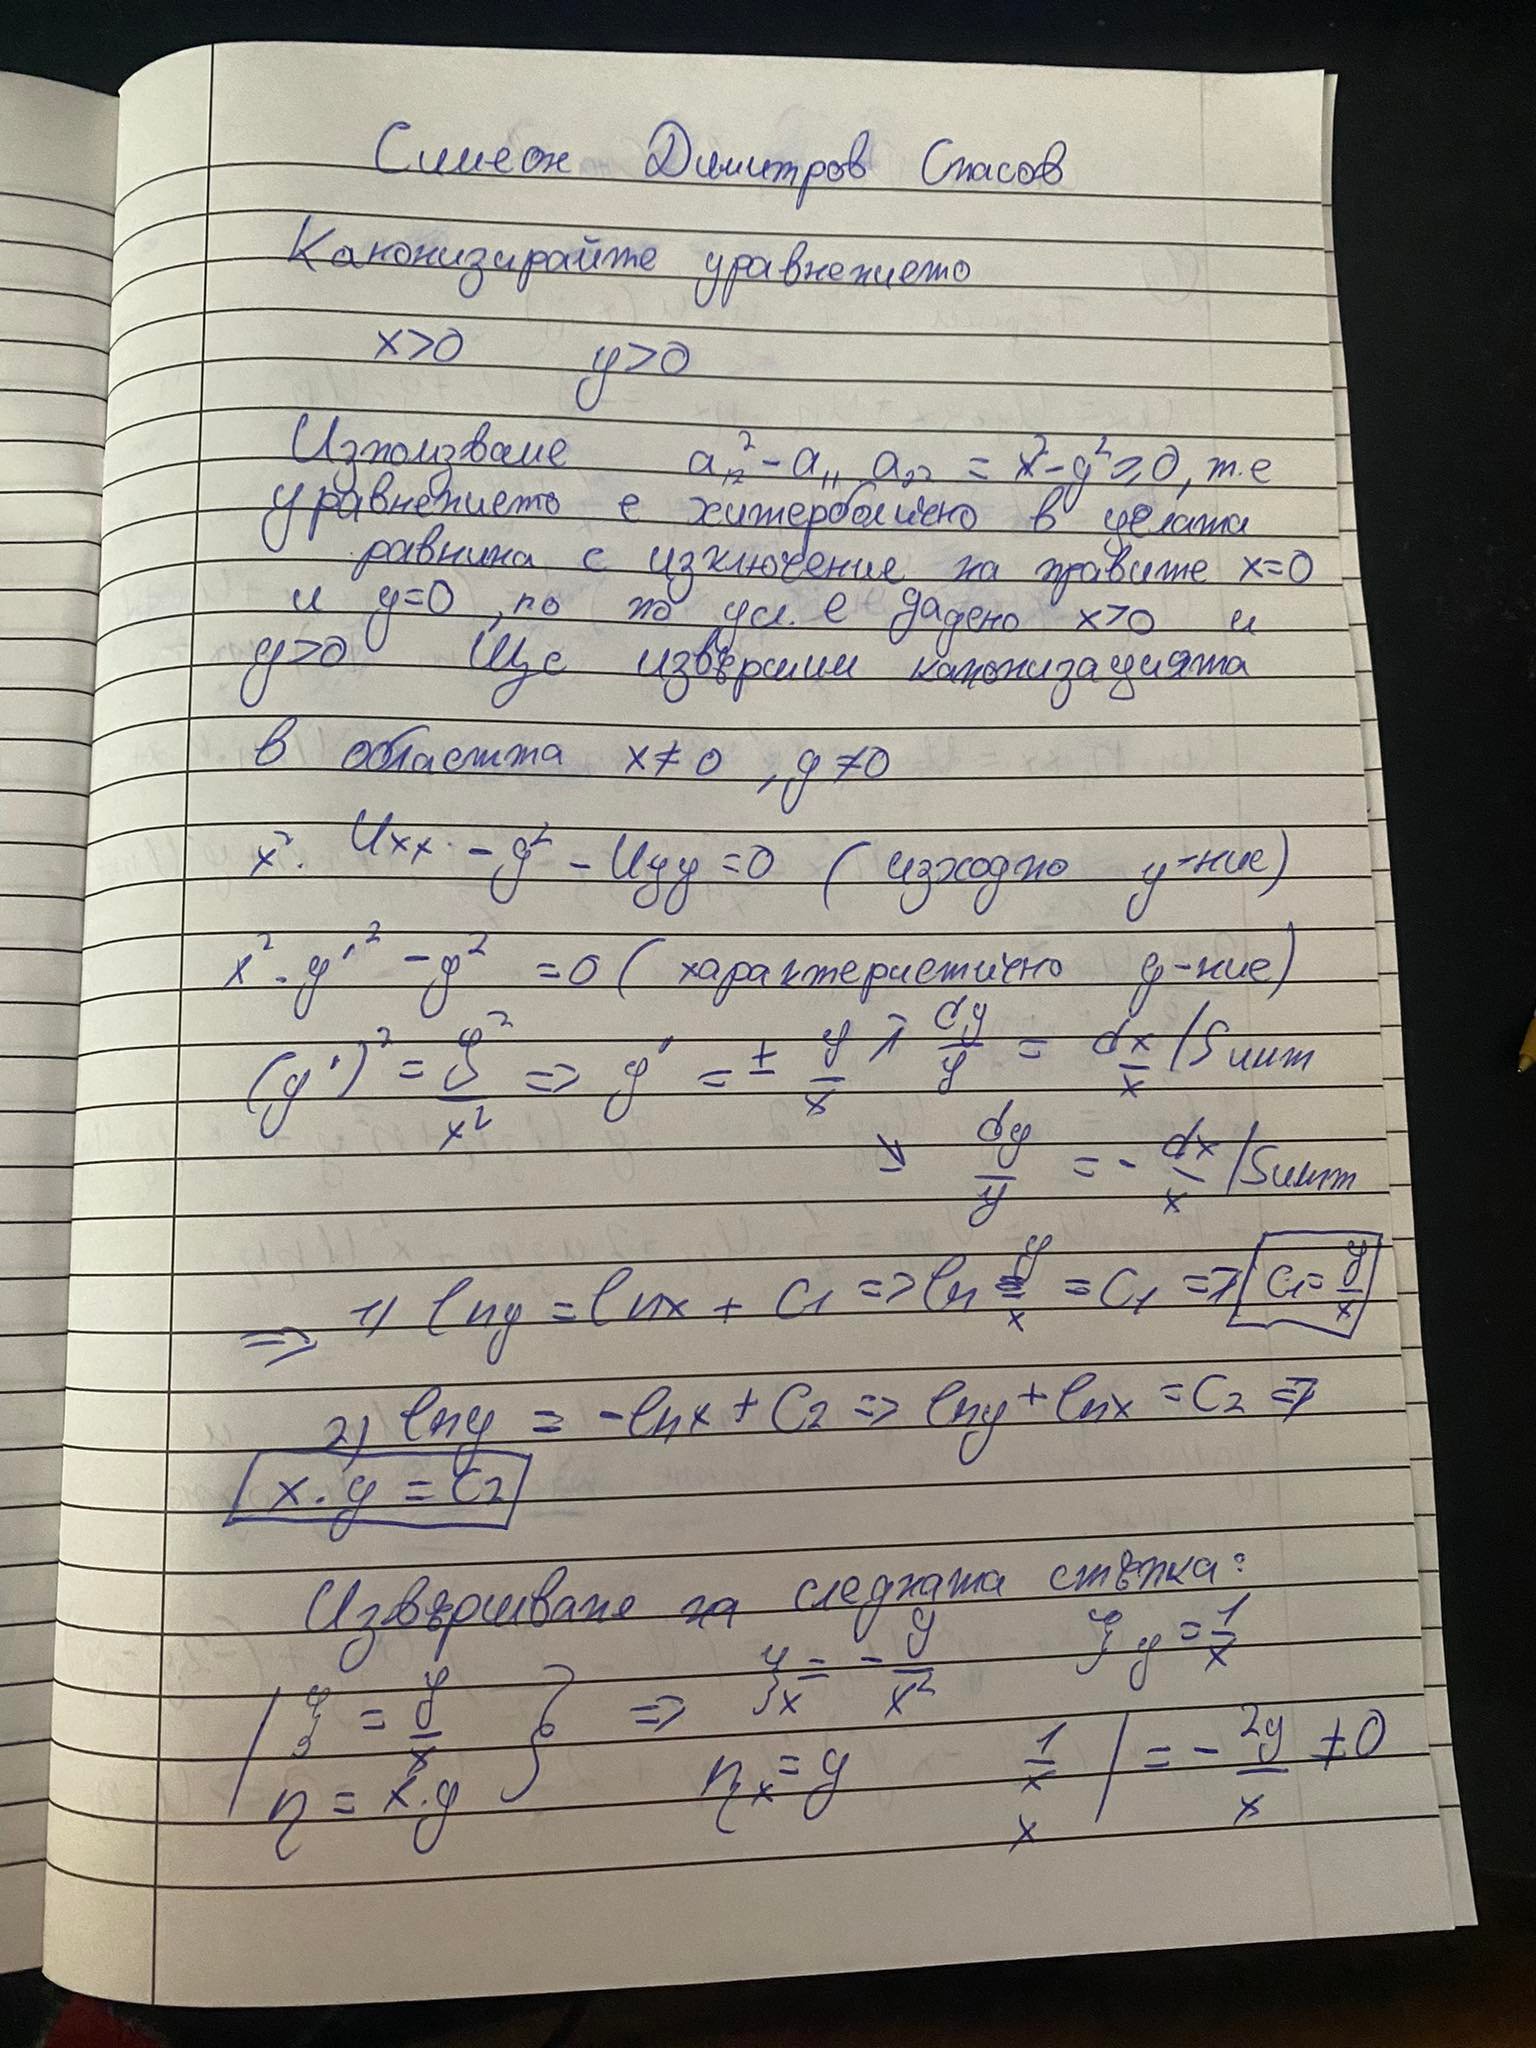 Симеон Димитров Спасов
Канонизирайте уравнението
x>0 y>0
Използваме a₁₂² - a₁₁ a₂₂ = x² - y² ≥ 0, т.е
уравнението е хиперболично в цялата
равнина с изключение на правите x=0
и y=0, но по усл. е дадено x>0 и
y>0 Ще извършим канонизацията
в областта x≠0, y≠0
x². Uxx. - y² - Uyy = 0 (изходно у-ние)
x². y'² - y² = 0 (характеристично у-ние)
(y')² = y²/x² => y' = ± y/x ↗ dy/y = dx/x /S инт
↘ dy/y = - dx/x /S инт
=> 1) lny = lnx + C1 => ln y/x = C1 => C1 = y/x
2) lny = -lnx + C2 => lny + lnx = C2 =>
x.y = C2
Извършване на следната стъпка:
| ξ = y/x } => ξx = - y/x² ξy = 1/x
| η = x.y } ηx = y 1/x x | = - 2y/x ≠ 0